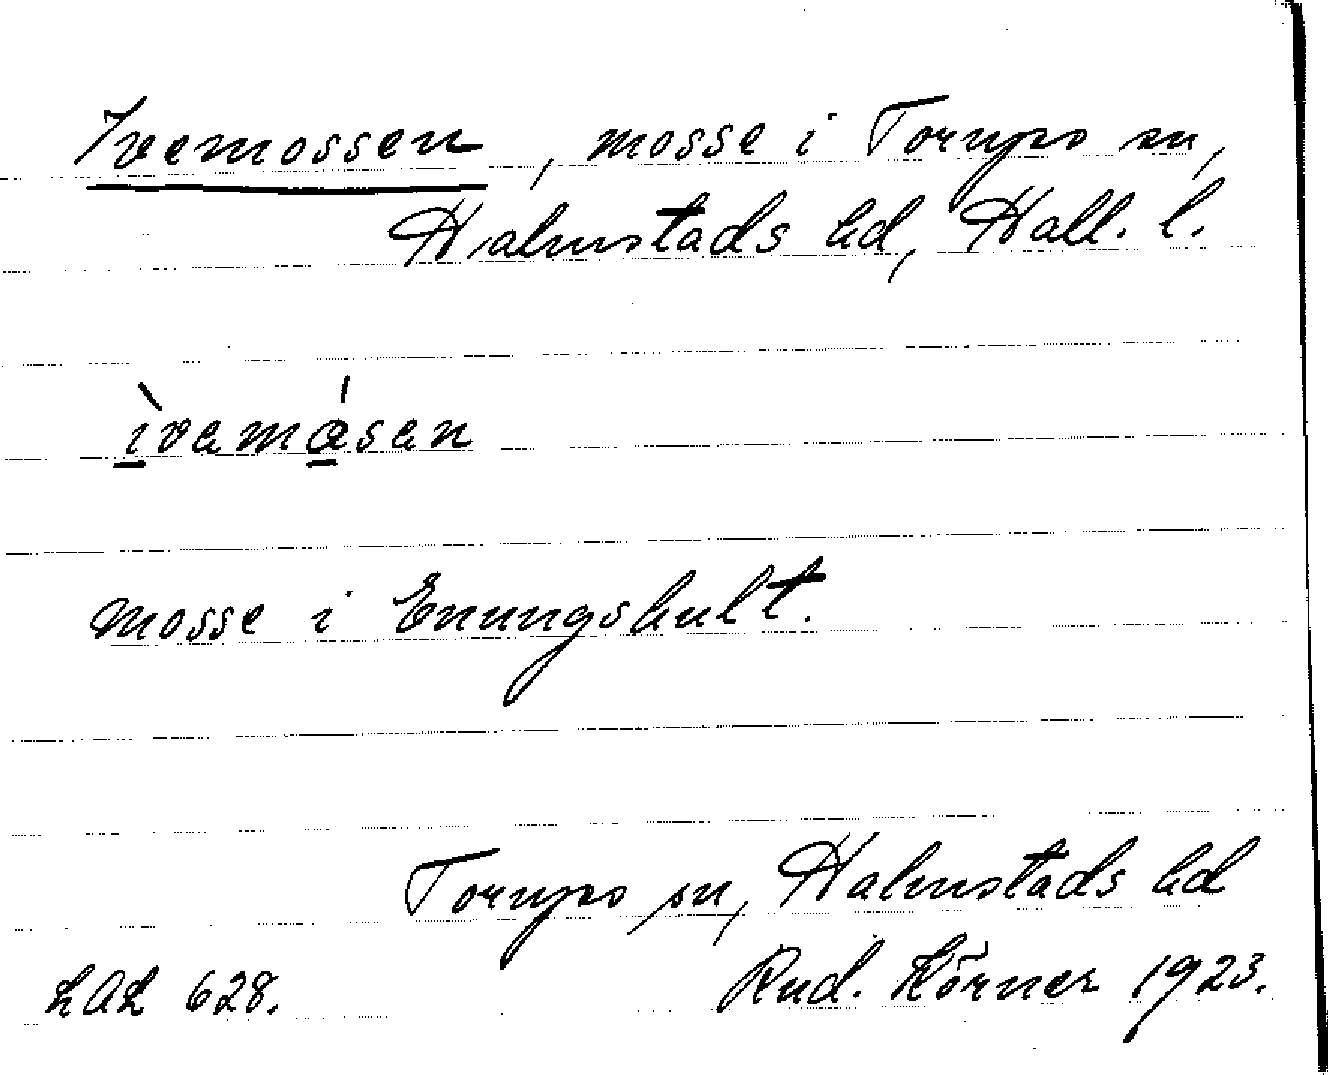 Ivemossen, mosse i Torups sn,
Halmstads hd, Hall. l.
ìvamåsen
mosse i Enungshult.
Torups sn, Halmstads hd
LAL 628.
Rud. Körner 1923.